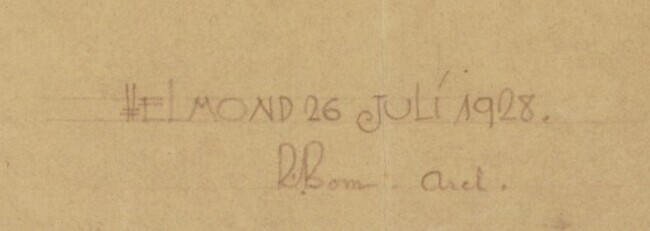 HELMOND 26 JULI 1928.
R. Bom. Arch.